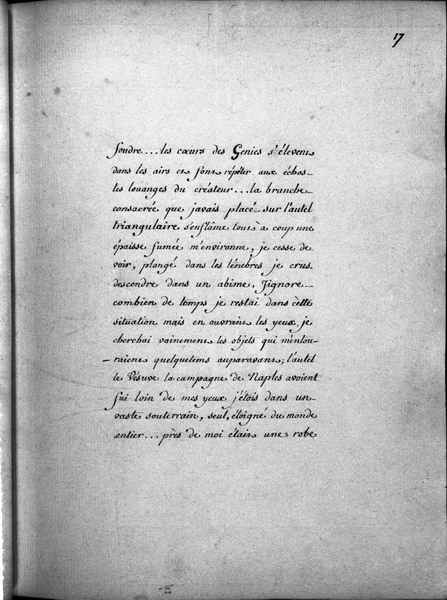 17
foudre.... les cœurs des Genies s'élevent
dans les airs et font répéter aux échos
les louanges du créateur... la branche
consacrée que javais placé sur l'autel
triangulaire s'enflâme tout à coup une
épaisse fumée m'environne, je cesse de
voir, plongé dans les ténebres je crus
descendre dans un abime, J'ignore
combien de temps je restai dans cette
situation mais en ouvrant les yeux, je
cherchai vainement les objets qui m'entou-
-raient quelquetems auparavant; l'autel
le Vésuve la campagne de Naples avoient
fui loin de mes yeux j'étois dans un
vaste souterrain, seul, éloigné du monde
entier... près de moi étoit une robe